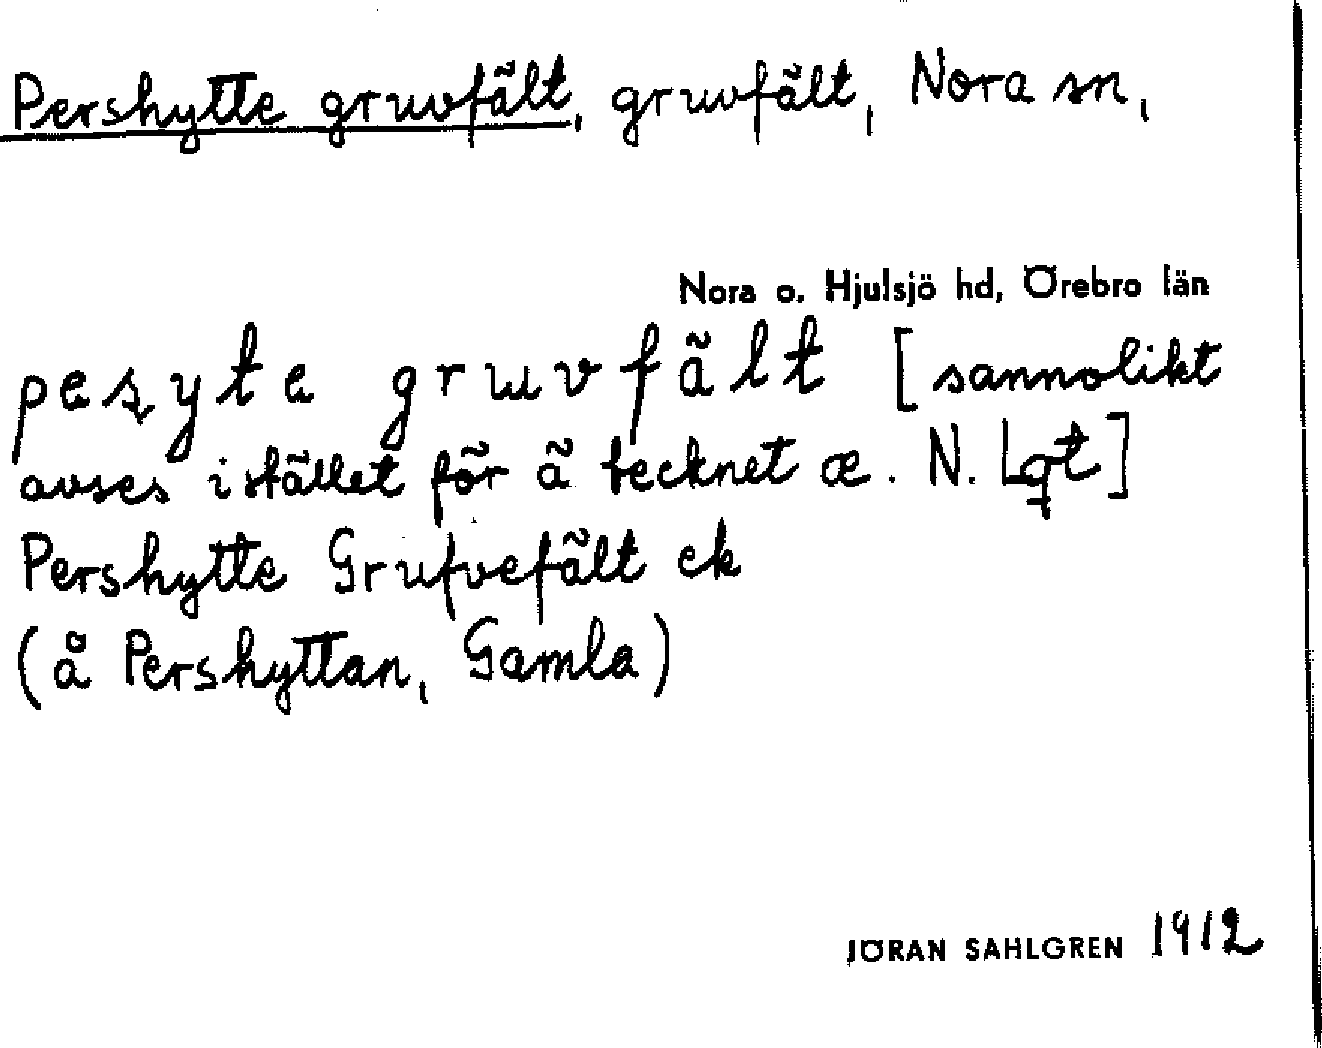 Pershytte gruvfält, gruvfält, Nora sn,
Nora o. Hjulsjö hd, Örebro län
peʂyte gruvfält [sannolikt
avses istället för ä tecknet æ. N. Lgt]
Pershytte Grufvefält ek
(å Pershyttan, Gamla)
JÖRAN SAHLGREN 1912